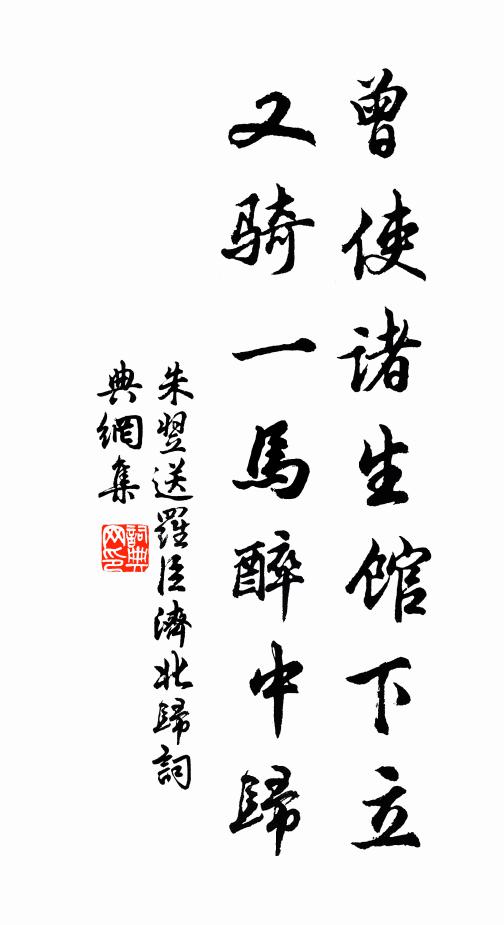 曾使諸生館下立
又騎一馬醉中歸
朱翌送羅臣濟北歸詞
典網集
詞典網印